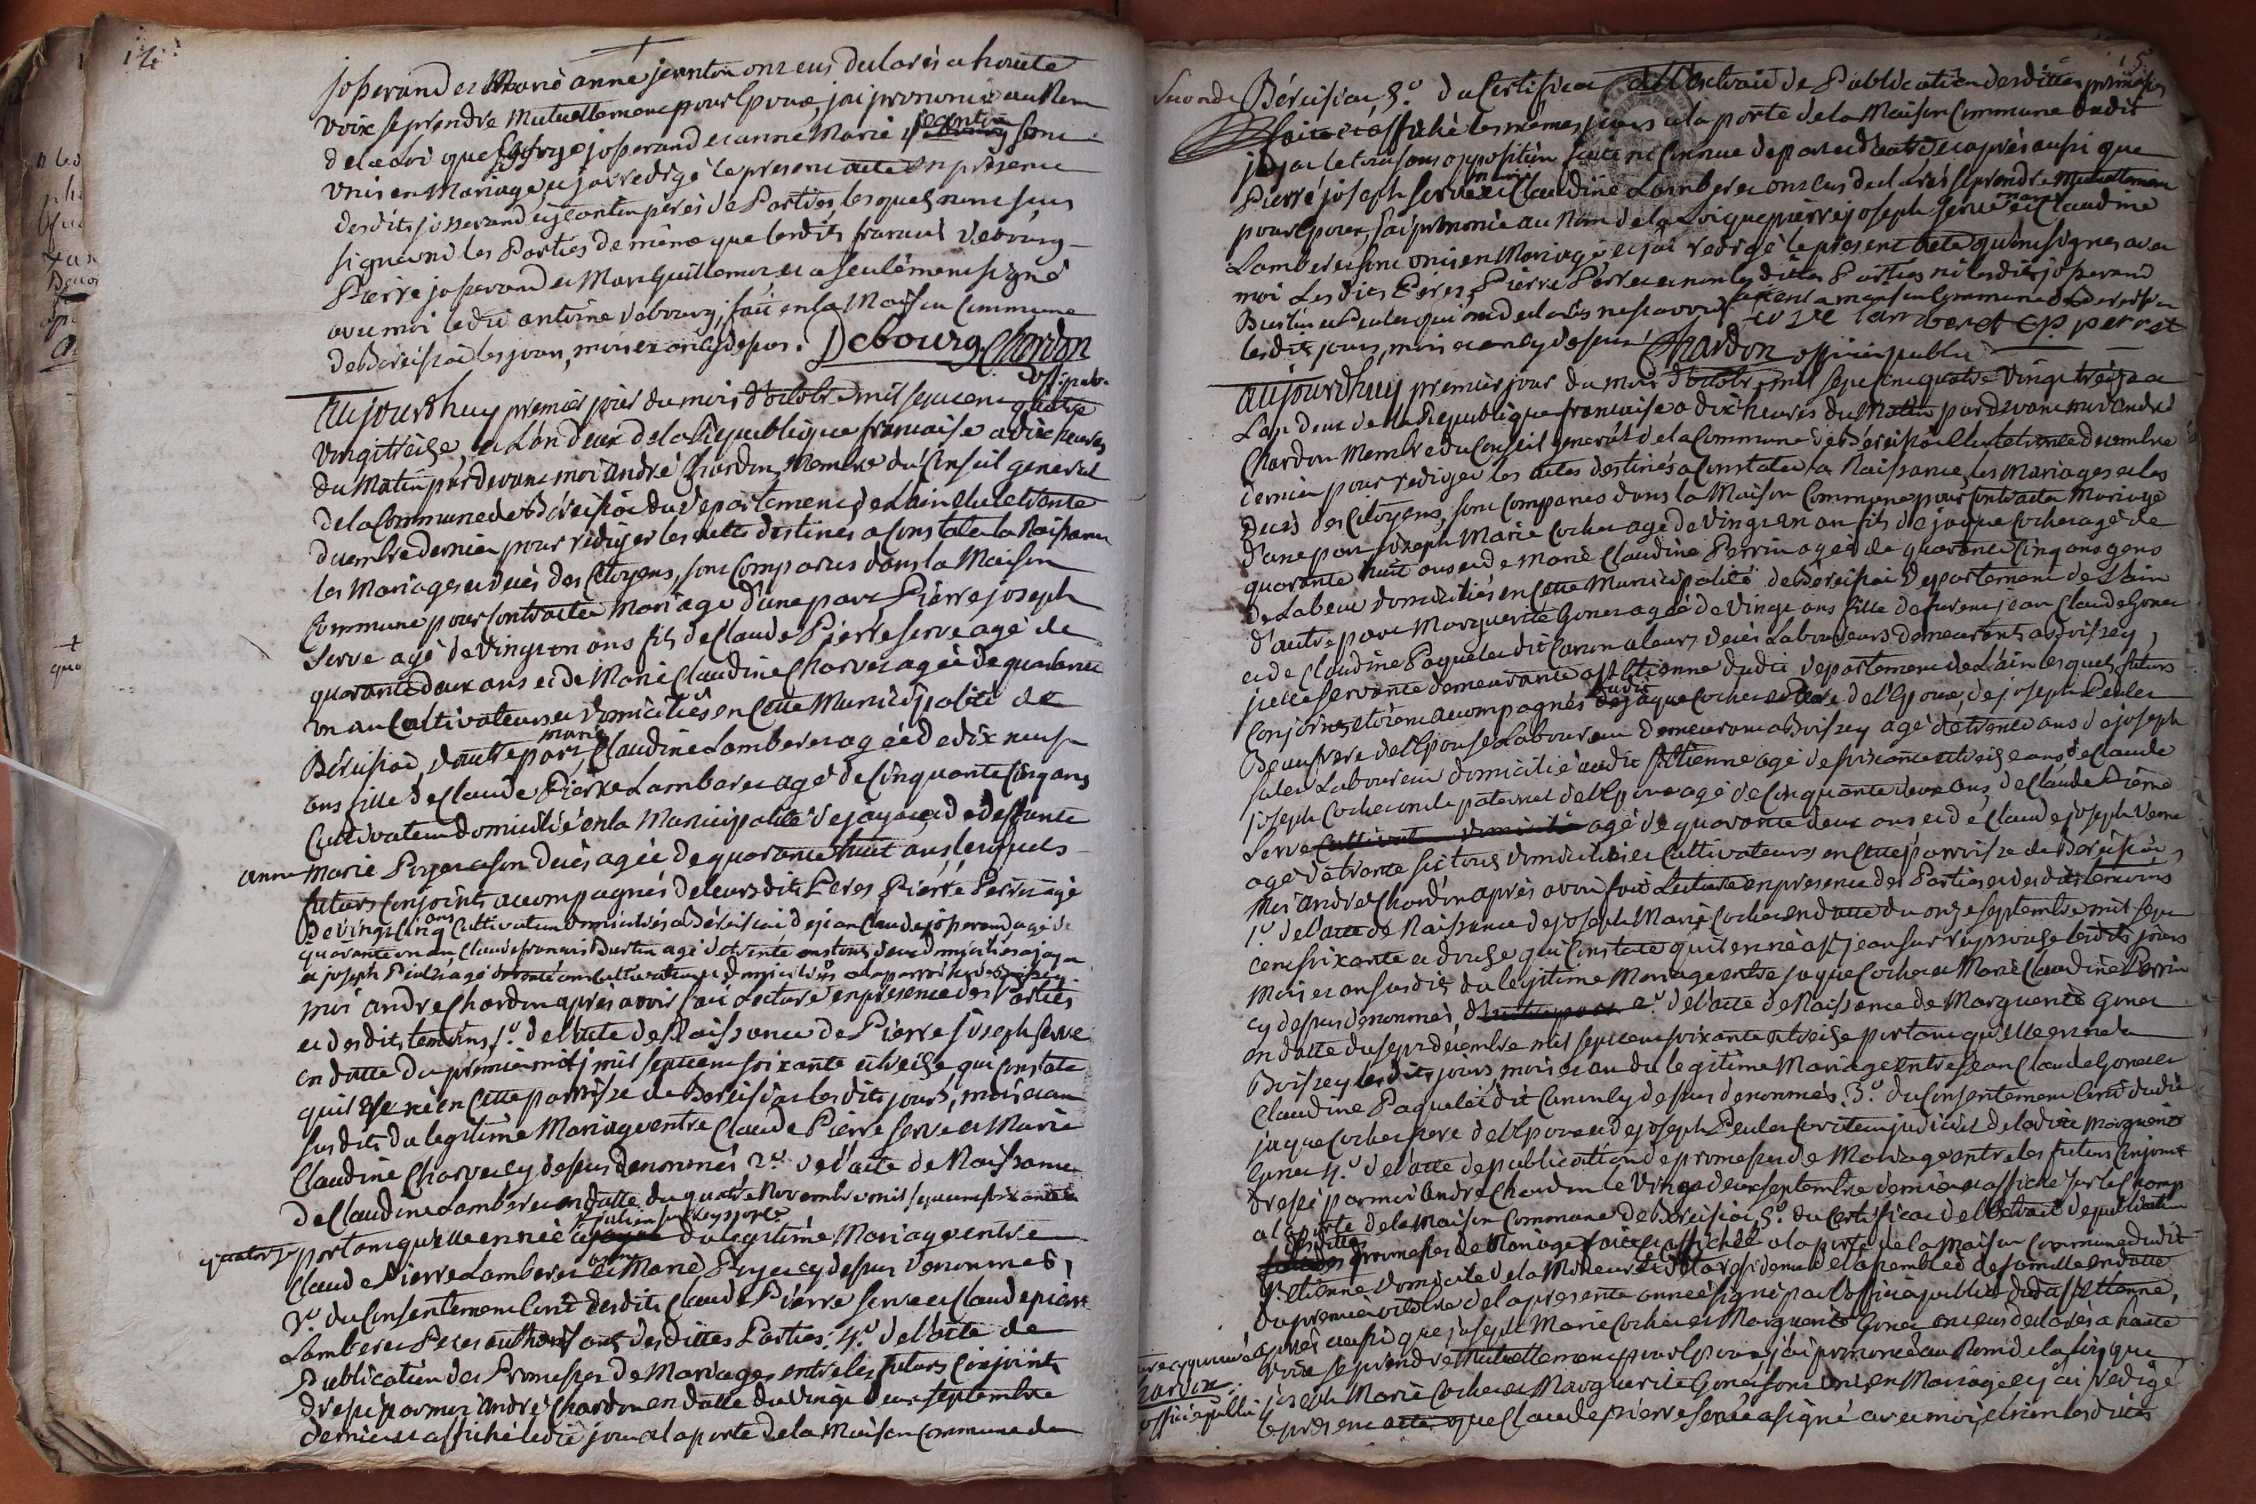 14
josserand et Marie anne jeantin ont eus declarés a haute
voix se prendre Mutuellement pour Epoux, j'ai prononcé au Nom
de la Loi que George josserand et anne Marie jeantin sont
Unis en Mariage et j'ai redigé le present acte En presence
desdits josserand et jeantin peres de Parties lesquels n'ont sus
signer ni les Parties de même que lesdits francois Debourg
Pierre josserand et Marc Guillemin et a seulement signé
avec moi ledit antoine debourg, fait en la Maison Commune
de Béreisiat les jours, mois et an cy dessus. Debourg Chardon
offi. pub.
Aujourdhuy premier jour du mois d'octobre mil sept cent quatre
Vingt treize, et L'an deux de la Republique francaise a dix heures
du Matin par devant moi andré Chardon Membre du Conseil general
de la Commune de Béreisiat du Departement de L'ain elu le trente
decembre dernier pour rediger les actes destinés a Constater la Naissance
les Mariages et decés des Citoyens, sont Comparus dans la Maison
Commune pour Contracter Mariage d'une part Pierre joseph
Serve agé de vingt un ans fils de Claude Pierre Serve agé de
quarante deux ans et de Marie Claudine Charvet agée de quarante
un an Cultivateurs et domiciliés en Cette Municipalité de
Béreisiat, d'autre part, marie Claudine Lamberet agée de dix neuf
ans fille de Claude Pierre Lamberet agé de Cinquante Cinq ans
Cultivateur domicilié en la Municipalité de jayat et de deffunte
anne Marie Poyet a son decés agée de quarante huit ans, lesquels
futurs Conjoints accompagnés de leursdits Peres, Pierre Perret agé
de vingt Cinq ans Cultivateur domiciliés a Béreisiat de jean Claude josserand agé de
quarante un an Claude francois Burtin agé de trente ans tous deux domiciliés a jayat
et joseph Peulet agé de trente ans Cultivateur et domiciliés a la parroisse de Boissey
moi andre Chardon apres avoir fait Lecture en presence des Parties
et desdits temoins, 1º. de l'acte de Naissance de Pierre joseph Serve
en datte du premier mil sept cent soixante et treize qui Constate
quil est né en Cette parroisse de Béreisiat lesdits jours, mois et an
susdits du legitime Mariage entre Claude Pierre Serve et Marie
Claudine Charvet cy dessus denommés 2º. de l'acte de Naissance
de Claudine Lamberet en datte du quatre Novembre mil sept cent soixante et
quatorze portant qu'elle en née a st julien sur Reyssouze du legitime Mariage entre
Claude Pierre Lamberet et anne Marie Poyet cy dessus denommés,
3º. du Consentement Ecrit desdits Claude Pierre Serve et Claude pierre
Lamberet Peres authorisant desdittes Parties. 4º. de l'acte de
Publication des Promesses de Mariages entre les futurs Conjoints
dressé par moi André Chardon en datte du vingt deux septembre
dernier et affiché ledit jour a la porte de la Maison Commune de
15
Seconde Béreisiat, 5º. du Certificat de l'Extrait de Publication desdittes promesses
faite et affiché les mêmes jours a la porte de la Maison Commune dudit
jayat le tout sans opposition faite ni Connue de part ni d'autre et après aussi que
Pierre joseph Serve et marie Claudine Lamberet ont eus declarés se prendre Mutuellement
pour Epoux, j'ai prononcé au Nom de la Loi que pierre joseph Serve et marie Claudine
Lamberet sont unis en Mariage et j'ai redigé le present acte qu'ont signés avec
moi Lesdits Peres, Pierre Perret et non lesdittes Parties ni lesdits josserand
Burtin et Peulet qui ont declarés ne scavoir, fait en la maison Commune de Béreisiat
lesdits jours, mois et an cy dessus Chardon officier public c p lamberet p perret
Aujourdhuy premier jour du mois d'octobre mil sept cent quatre Vingt treize et
L'an deux de la Republique francaise a dix heures du Matin par devant moi andré
Chardon Membre du Conseil general de la Commune de Béreisiat elu le trente decembre
dernier pour rediger les actes destinés a Constater la Naissance, les Mariages et les
Decés des Citoyens, sont Comparus dans la Maison Commune pour Contracter Mariage
d'une part joseph Marie Cochet agé de vingt un an fils de jaque Cochet agé de
quarante huit ans et de Marie Claudine Perrin agée de quarante Cinq ans gens
de Labeur domiciliés en Cette Municipalité de Béreisiat Departement de L'ain
d'autre part Marguerite Gonet agée de vingt ans fille de furent jean Claude Gonet
et de Claudine Paquelet dit Carun a leurs decés Laboureurs demeurants a Boissey,
icelle servante demeurante a st Etienne dudit Departement de L'ain lesquels futurs
Conjoints etoient accompagnés dudit jaque Cochet Pere de l'Epoux, de joseph Peulet
Beaufrere de l'Epouse Laboureur demeurant a Boissey agé de trente ans de joseph
Laboureur domicilié audit st Etienne agé de soixante et treize ans, de Claude
joseph Cochet oncle paternel de l'Epoux agé de Cinquante deux ans, de Claude Pierre
Serve agé de quarante deux ans et de Claude joseph Verne
agé de trente six tous domiciliés et Cultivateurs en Cette parroisse de Béreisiat,
Moi andré Chardon après avoir fait Lecture en presence des Parties et desdits temoins
1º. de l'acte de Naissance de joseph Marie Cochet en datte du onze septembre mil sept
cent soixante et douze qui Constate qu'il en né a st jean sur reyssouze lesdits jours
mois et an susdit, du legitime Mariage entre jaque Cochet et Marie Claudine Perrin
cy dessus denommés, 2º. de l'acte de Naissance de Marguerite Gonet
en datte du sept decembre mil sept cent soixante et treize portant qu'elle en née a
Boissey lesdits jours, mois et an du legitime Mariage entre jean Claude Gonet et
Claudine Paquelet dit Carun cy dessus denommés. 3º. du Consentement Ecrit dudit
jaque Cochet Pere de l'Epoux et de joseph Peulet Curateur judiciel de ladite Marguerite
Gonet 4º. de l'acte de publication de promesses de Mariage entre les futurs Conjoints
dressé par moi André Chardon le Vingt deux septembre dernier et affiché sur le Champ
a la porte de la Maison Commune de Béreisiat, 5º. du Certificat de l'Extrait de publication
desdittes promesses de Mariage faite et affichée a la porte de la Maison Commune dudit
st Etienne domicile de la Mineure et de la residence de l'assemblée de famille en datte
du premier octobre de la presente année signé par l'officier public dudit st Etienne,
après aussi que joseph Marie Cochet et Marguerite Gonet ont eus declarés a haute
voix se prendre Mutuellement pour Epoux, j'ai prononcé au Nom de la Loi que
joseph Marie Cochet et Marguerite Gonet sont unis en Mariage et j'ai redigé
le present acte que Claude pierre Serve a signé avec moi, et non lesdites
Chardon
officier public